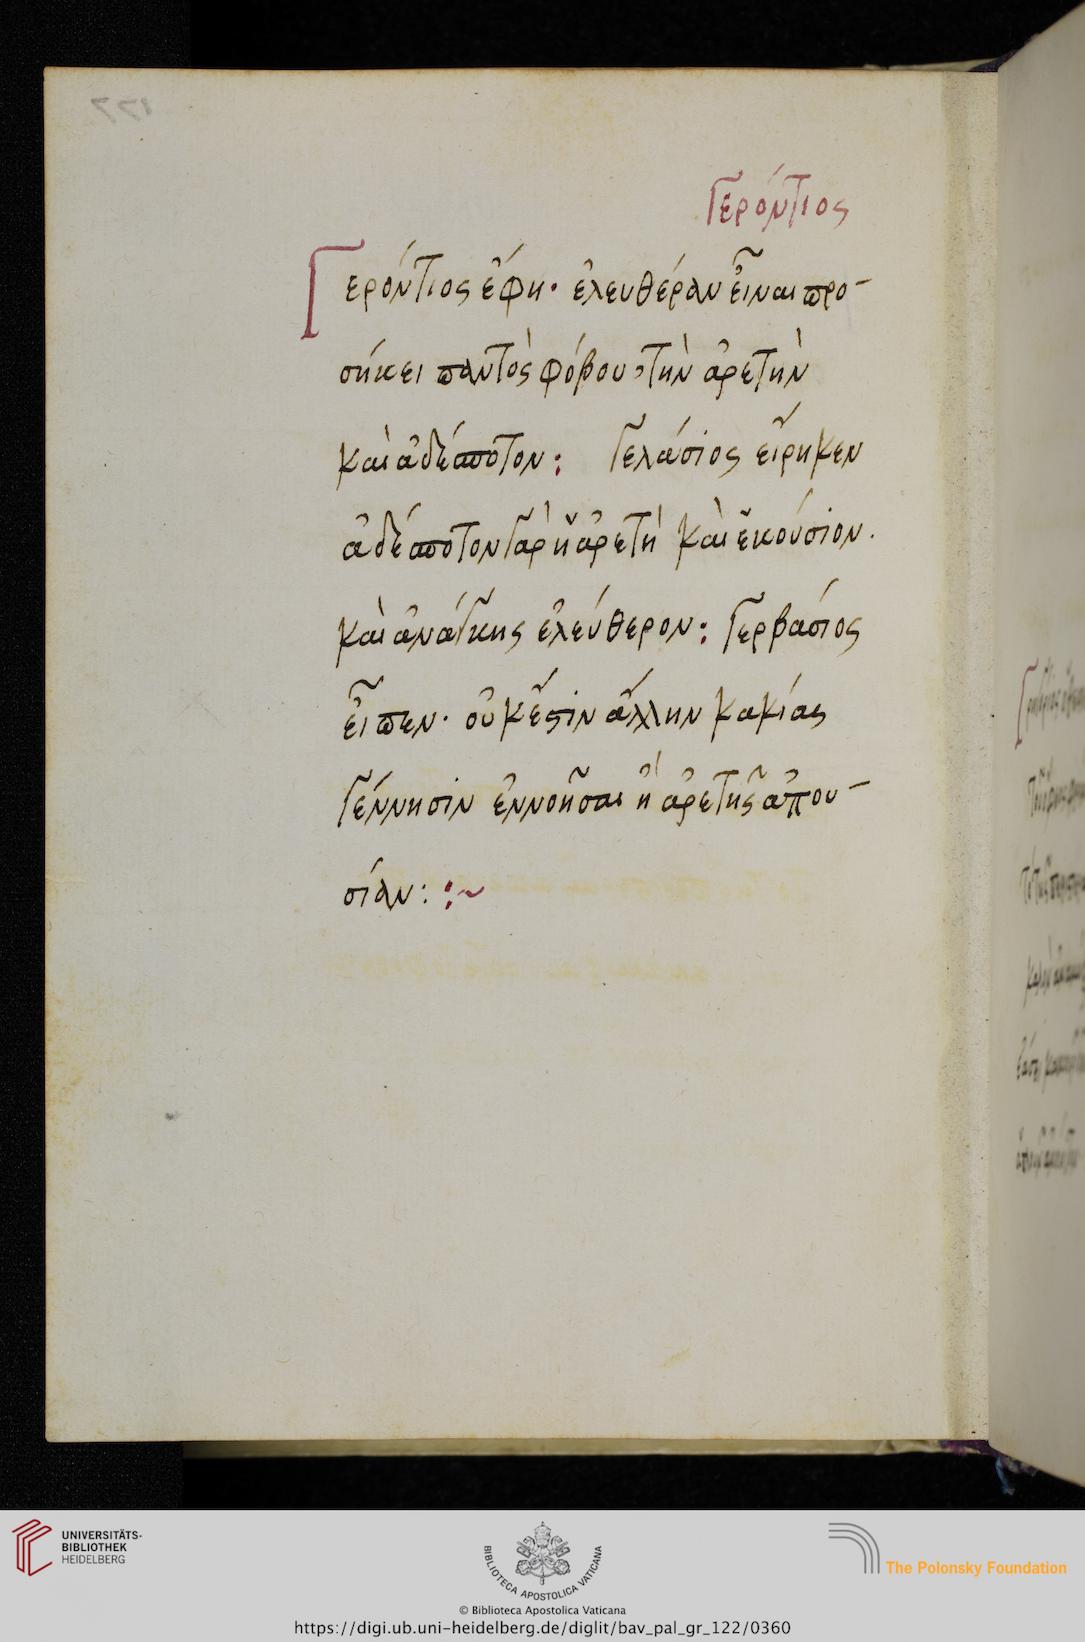 Γερόντιος
Γερόντιος ἔφη· ἐλευθέραν εἶναι προ-
σήκει παντὸς φόβου, τὴν ἀρετὴν
καὶ ἀδέσποτον: Γελάσιος εἴρηκεν
ἀδέσποτον γὰρ ἡ ἀρετὴ καὶ ἑκούσιον.
καὶ ἀνάγκης ἐλεύθερον: Γερβάσιος
εἶπεν· οὐκ ἔστιν ἄλλην κακίας
γέννησιν ἐννοῆσαι ἢ ἀρετῆς ἀπου-
σίαν: :~
177
UNIVERSITÄTS-
BIBLIOTHEK
HEIDELBERG
BIBLIOTECA APOSTOLICA VATICANA
The Polonsky Foundation
© Biblioteca Apostolica Vaticana
https://digi.ub.uni-heidelberg.de/diglit/bav_pal_gr_122/0360